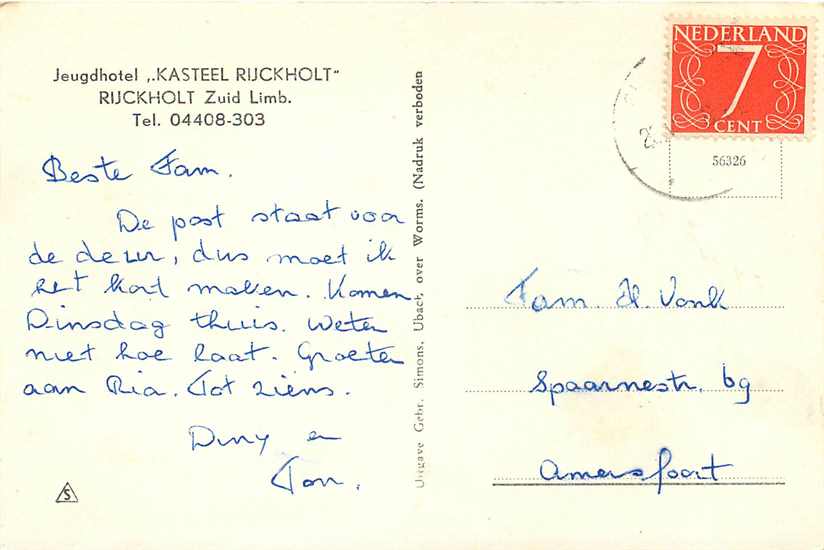 Jeugdhotel „KASTEEL RIJCKHOLT"
RIJCKHOLT Zuid Limb.
Tel. 04408-303
Beste Fam.
De post staat voor
de deur, dus moet ik
het kort maken. Komen
Dinsdag thuis. Weten
niet hoe laat. Groeten
aan Ria. Tot ziens.
Diny en
Ton.
S
Uitgave Gebr. Simons, Ubach over Worms. (Nadruk verboden
NEDERLAND
7
CENT
56326
Fam. H. Vonk
Spaarnestr. 69
Amersfoort